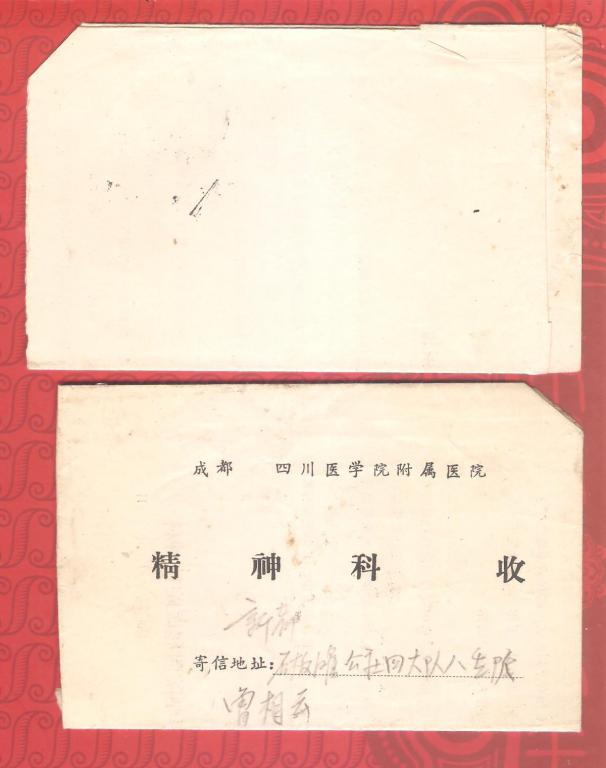 成都 四川医学院附属医院
精神科 收
新都
寄信地址：石板滩公社四大队八生产队
曾相云